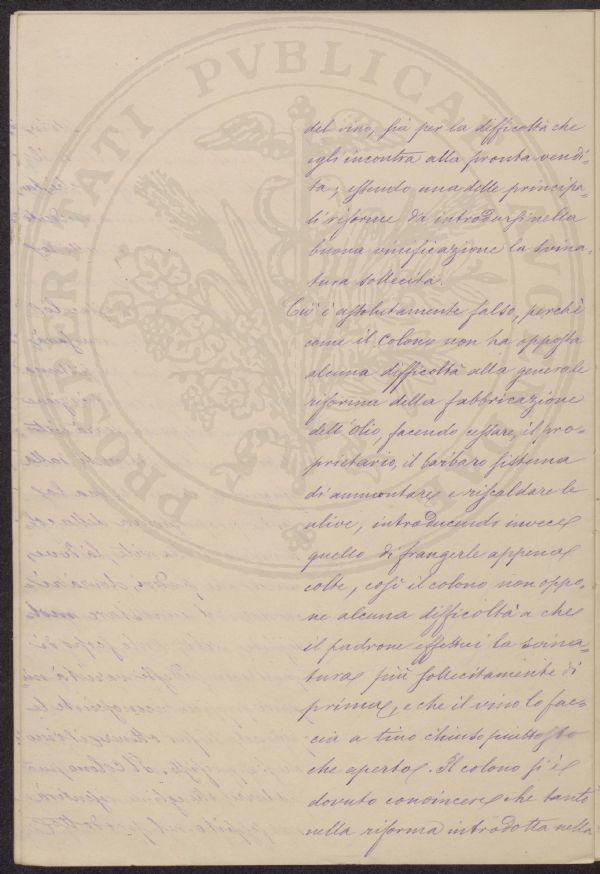 del vino, sia per la difficoltà che
egli incontra alla pronta vendi-
ta; essendo una delle principa-
li riforme da introdursi nella
buona vinificazione la svina-
tura sollecita.
Ciò è assolutamente falso, perchè
come il colono non ha opposta
alcuna difficoltà alla generale
riforma della fabbricazione
dell'Olio, facendo cessare, il pro-
prietario, il barbaro sistema
di ammontare e riscaldare le
olive, introducendo invece
quello di frangerle appena
colte, così il colono non oppo-
ne alcuna difficoltà a che
il padrone effettui la svina-
tura più sollecitamente di
prima, e che il vino lo fac-
cia a tino chiuso piuttosto
che aperto. Il colono si è
dovuto convincere che tanto
nella riforma introdotta nella
PROSPERITATI PVBLICAE